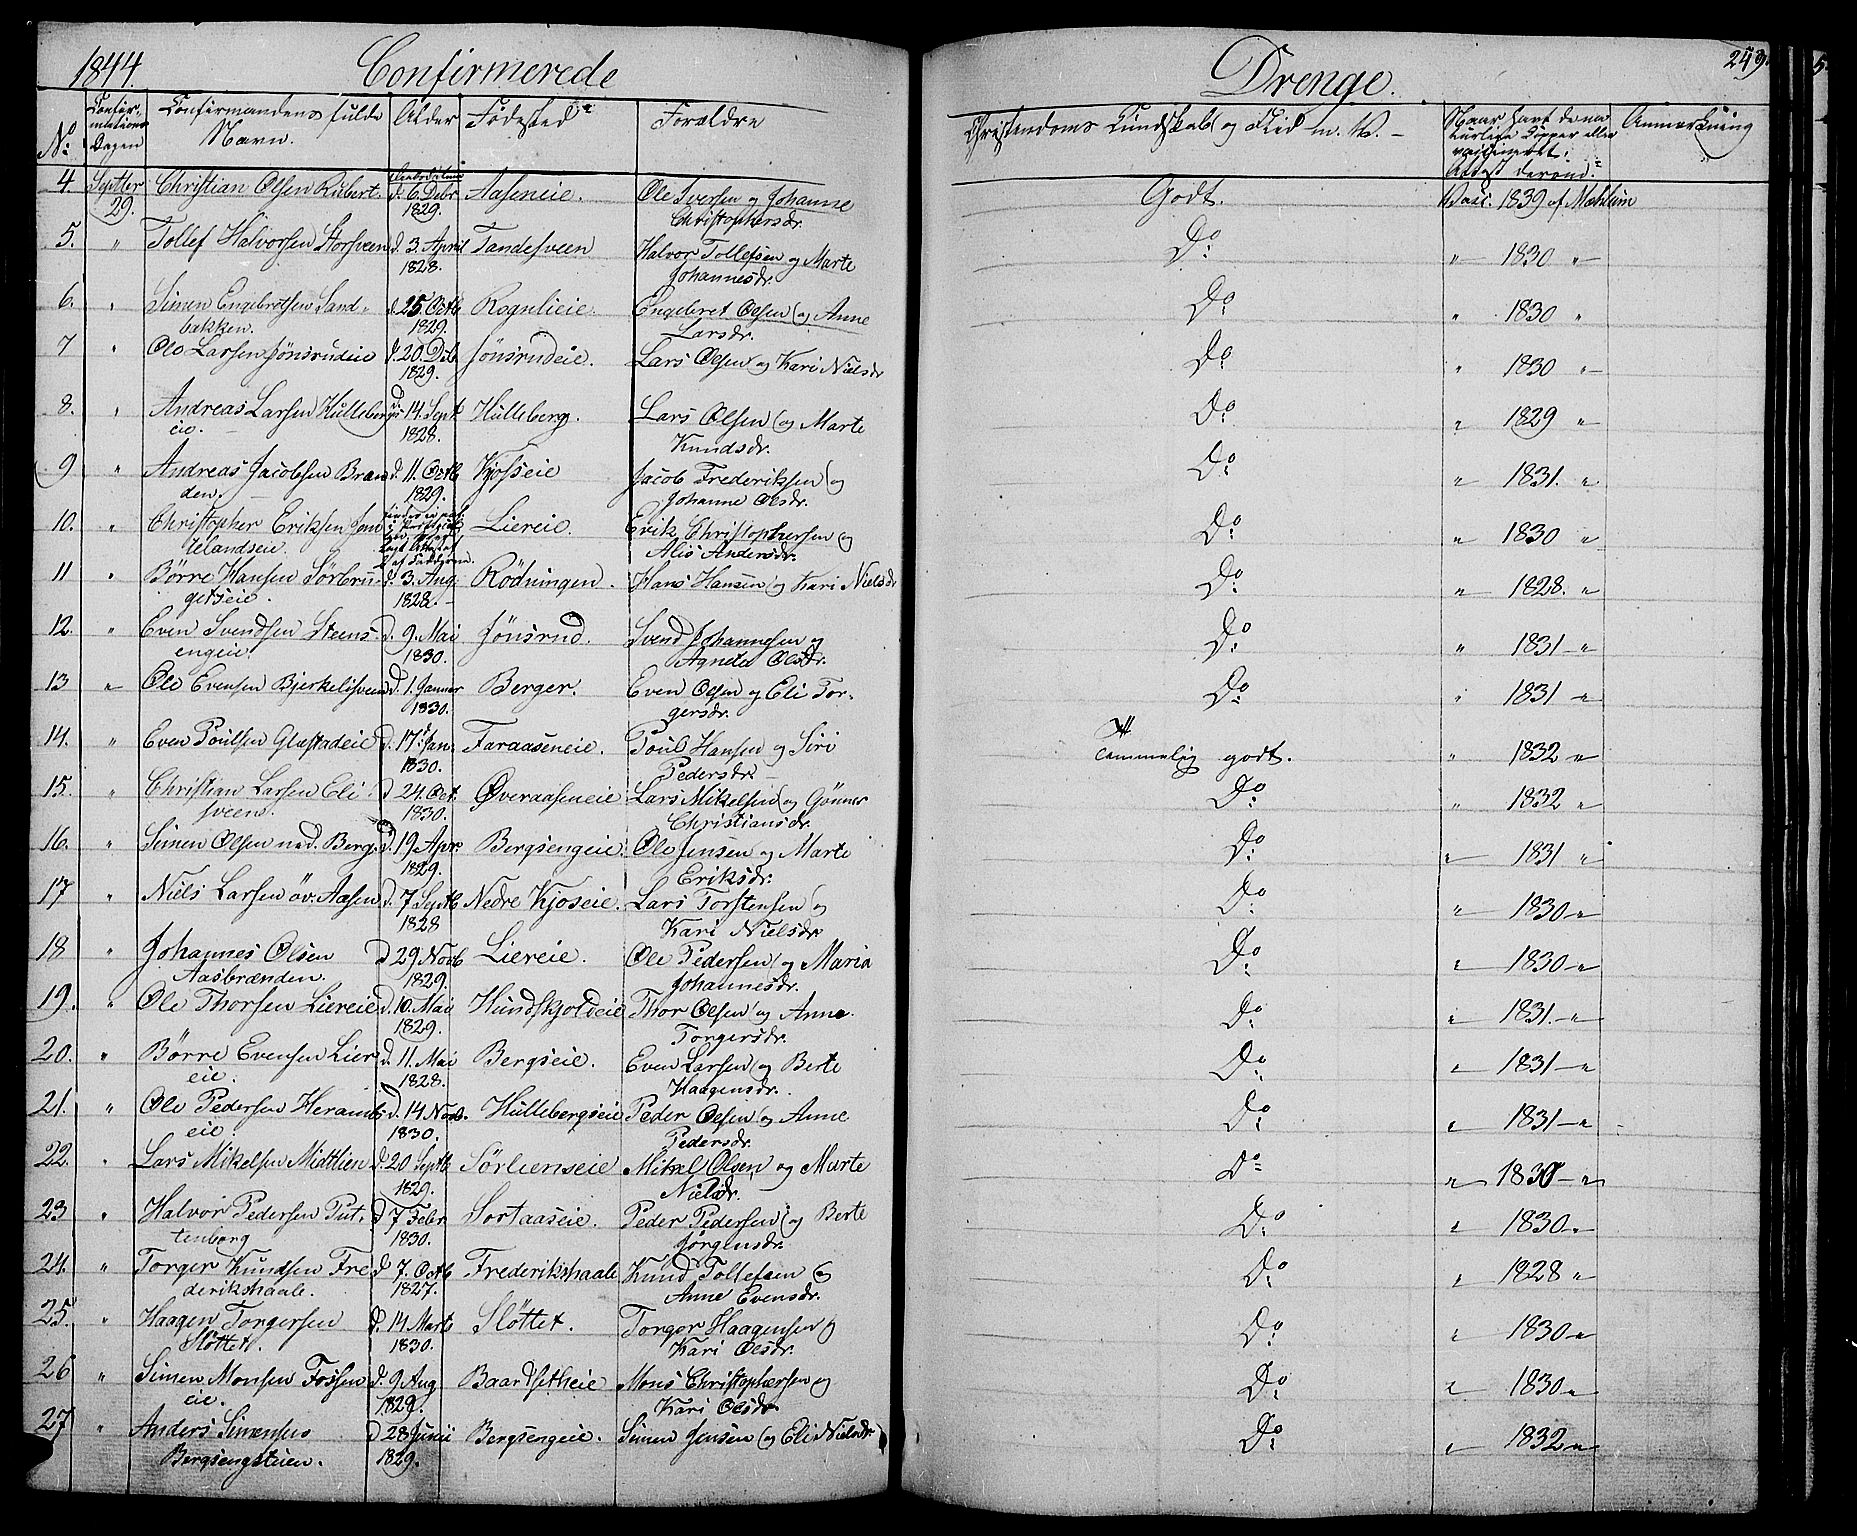 1844. Confirmerede Drenge. 259.
No. Confirmations Dagen Confirmandens fulde Navn. Alder Fødested Forældre Christendoms Kundskab og Flid m. V. Naar havt de naturlige Kopper eller vaccineret. Attest derom. Anmærkning
4 Septbr 29. Christian Olsen Rubert d. 6. Debr 1829. Aaseneie. Ole Iversen og Johanne Christophersdr. Godt. Vacc. 1839 af Mæhlum
5. " Tollef Halvorsen Storsveen d. 3. April 1828. Tandesveen Halvor Tollefsen og Marte Johannesdr. Do " 1830 "
6. " Simen Engebretsen Sandbakken. d. 25 Octb 1829. Rognlieie. Engebret Olsen og Anne Larsdr. Do " 1830 "
7 " Ole Larsen Jønsrudeie d. 20. Deb. 1829. Jønsrudeie. Lars Olsen og Kari Nielsdr Do " 1830 "
8. " Andreas Larsen Hullebergseie. d. 14. Sept. 1828. Hulleberg. Lars Olsen og Marte Knudsdr. Do " 1829 "
9 " Andreas Jacobsen Brænden. d. 11. Octb 1829. Kjosseie Jacob Frederiksen og Johanne Olsdr. Do " 1831. "
10. " Christopher Eriksen Jønnlelandseie. Liereie. Erik Christophersen og Alis Andersdr. Do " 1830 "
11 " Børre Hansen Sørbrugetseie. d. 3. Aug. 1828. Rødningen. Hans Hansen og Kari Nielsdr Do " 1828. "
12. " Even Svendsen Steensengeie. d. 9. Mai 1830. Jønsrud. Svend Johannesen og Agnete Olsdr. Do " 1831 "
13 " Ole Evensen Bjerkelisveen d. 1. Januar 1830. Berger. Even Olsen og Eli Torgersdr. Do " 1831 "
14. " Even Poulsen Glæstadeie d. 17. Jan. 1830. Faraaseneie. Poul Hansen og Siri Pedersdr. Temmelig godt. " 1832 "
15. " Christian Larsen Elisveen. d 24. Oct. 1830. Øveraaseneie Lars Mikelsen og Gønner Christiansdr. Do " 1832 "
16. " Simen Olsen ned. Berg. d. 19 Apr. 1829. Bergsengeie. Ole Jensen og Marte Eriksdr. Do " 1831 "
17 " Niels Larsen øv. Aasen d. 7 Septb 1828 Nedre Kjoseie. Lars Torstensen og Kari Nielsdr Do " 1830 "
18 " Johannes Olsen Aasbrænden. d 29 Novb 1829. Liereie. Ole Pedersen og Maria Johannesdr. Do " 1830 "
19. " Ole Thorsen Liereie d. 10. Mai 1829. Hundskjoldeie Thor Olsen og Anne Torgersdr. Do " 1831. "
20. " Børre Evensen Liereie. d. 11. Mai 1828. Bergseie. Even Larsen og Berte Haagensdr. Do " 1831 "
21. " Ole Pedersen Herambseie. d. 14 Novb. 1830. Hullebergseie Peder Olsen og Anne Pedersdr. Do " 1831 "
22. " Lars Mikelsen Midtlien d. 20 Septb 1829. Sørlienseie Mikel Olsen og Marte Nielsdr. Do " 1830 "
23 " Halvor Pedersen Puttenborg d 7 Febr 1830. Sortaaseie. Peder Pedersen og Berte Jørgensdr. Do " 1830 "
24. " Torger Knudsen Frederikshaale. d 7. Octb 1827. Frederikshaale Knud Tollefsen & Anne Evensdr. Do " 1828 "
25. " Haagen Torgersen Sløttet. d. 14 Marts 1830. Sløttet. Torger Haagensen og Kari Olsdr. Do " 1830 "
26 " Simen Monsen Fossen eie. d. 9 Aug 1829. Baardsetheie Mons Christophersen og Kari Olsdr Do " 1830 "
27 " Anders Simensen Bergsengstuen. d 28 Junii 1829. Bergsengeie. Simen Jensen og Eli Nielsdr Do " 1832 "